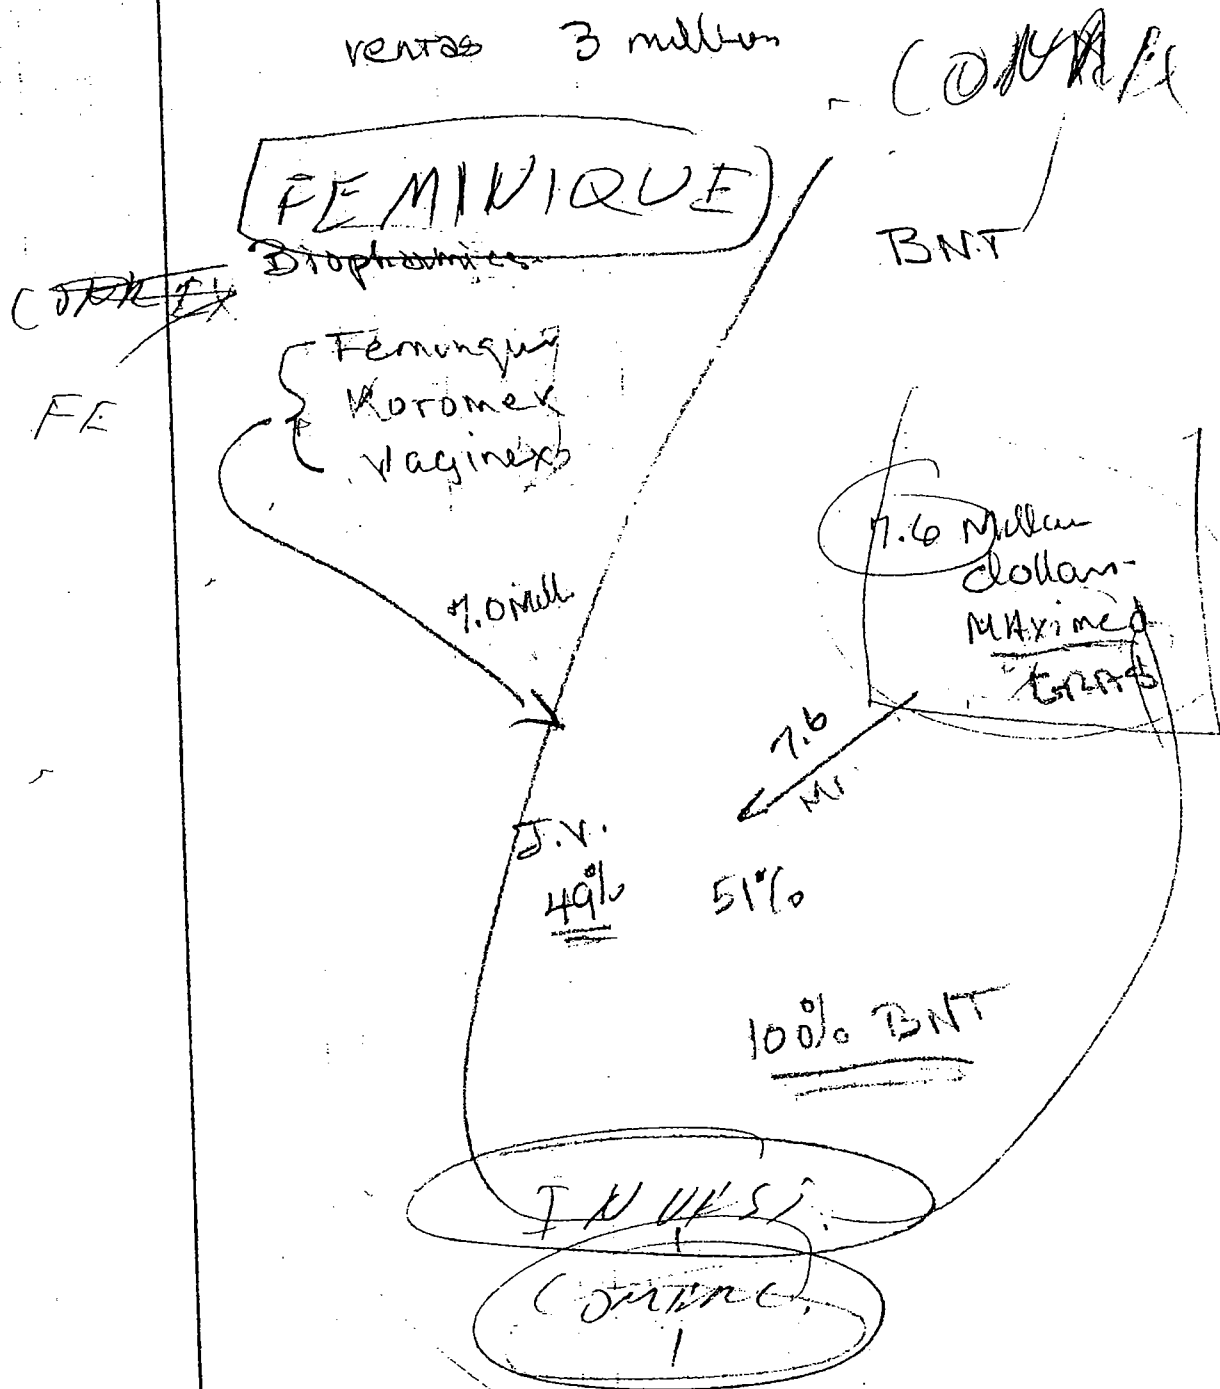 ventas 3 million
FEMINIQUE
Biopharmics
BNT
Feminique
Koromex
Vaginex
FE
7.6 Million
dollars
MAximed
7.0 Mill.
7.6
Mi.
J.V.
49% 51%
100% BNT
INVEST.
COMERC.